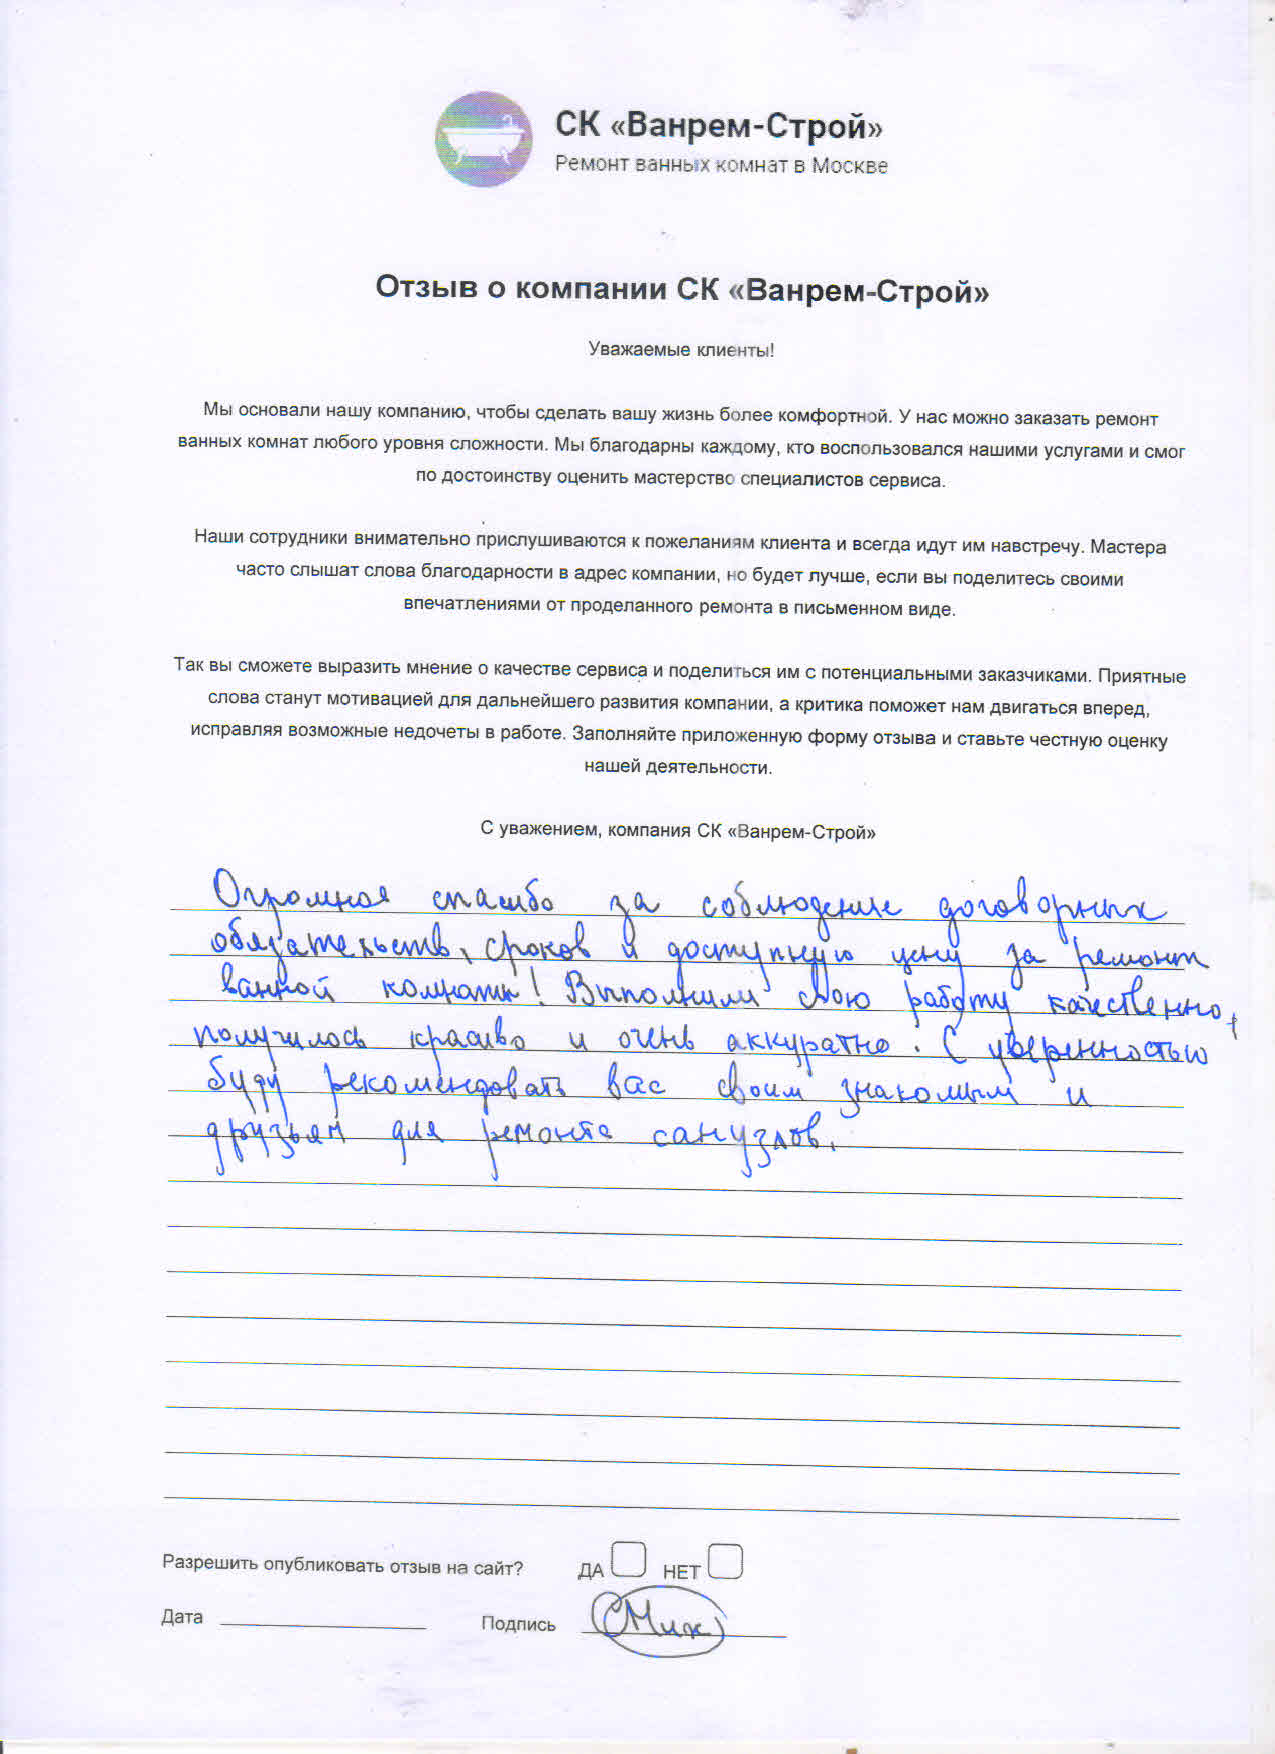 СК «Ванрем-Строй»
Ремонт ванных комнат в Москве
Отзыв о компании СК «Ванрем-Строй»
Уважаемые клиенты!
Мы основали нашу компанию, чтобы сделать вашу жизнь более комфортной. У нас можно заказать ремонт
ванных комнат любого уровня сложности. Мы благодарны каждому, кто воспользовался нашими услугами и смог
по достоинству оценить мастерство специалистов сервиса.
Наши сотрудники внимательно прислушиваются к пожеланиям клиента и всегда идут им навстречу. Мастера
часто слышат слова благодарности в адрес компании, но будет лучше, если вы поделитесь своими
впечатлениями от проделанного ремонта в письменном виде.
Так вы сможете выразить мнение о качестве сервиса и поделиться им с потенциальными заказчиками. Приятные
слова станут мотивацией для дальнейшего развития компании, а критика поможет нам двигаться вперед,
исправляя возможные недочеты в работе. Заполняйте приложенную форму отзыва и ставьте честную оценку
нашей деятельности.
С уважением, компания СК «Ванрем-Строй»
Огромное спасибо за соблюдение договорных
обязательств, сроков и доступную цену за ремонт
ванной комнаты! Выполнили свою работу качественно,
получилось красиво и очень аккуратно. С уверенностью
буду рекомендовать вас своим знакомым и
друзьям для ремонта санузлов.
Разрешить опубликовать отзыв на сайт? ДА НЕТ
Дата Подпись